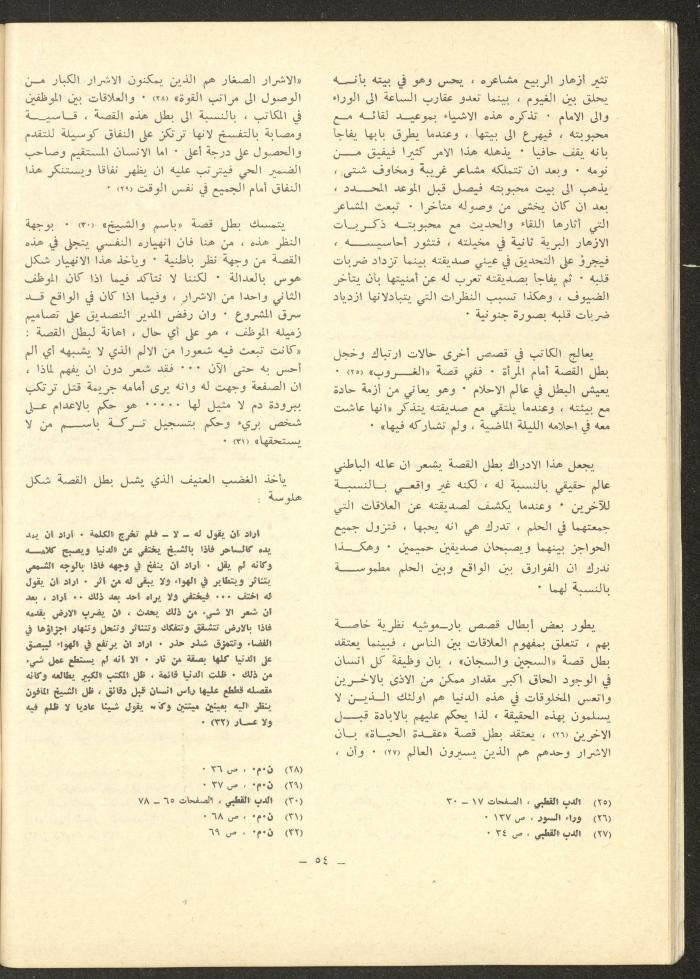 تثير أزهار الربيع مشاعره ، يحس وهو في بيته بأنـــه
يحلق بين الغيوم ، بينما تعدو عقارب الساعة الى الوراء
والى الامام ٠ تذكره هذه الاشياء بموعيد لقائـه مــع
محبوبته ، فيهرع الى بيتها ، وعندما يطرق بابها يفاجأ
بانه يقف حافيا ٠ يذهله هذا الامر كثيرا فيفيق مـــن
نومه ٠ وبعد ان تتملكه مشاعر غريبة ومخاوف شتى ،
يذهب الى بيت محبوبته فيصل قبل الموعد المحـــدد ،
بعد ان كان يخشى من وصوله متأخرا ٠ تبعث المشاعر
التي أثارها اللقاء والحديث مع محبوبتــه ذكــريــات
الازهار البرية ثانية في مخيلته ، فتثور أحاسيســـه ،
فيجرؤ على التحديق في عيني صديقته بينما تزداد ضربات
قلبه ٠ ثم يفاجأ بصديقته تعرب له عن أمنيتها بأن يتأخر
الضيوف ، وهكذا تسبب النظرات التي يتبادلانها ازدياد
ضربات قلبه بصورة جنونية ٠
يعالج الكاتب في قصص أخرى حالات ارتباك وخجل
بطل القصة أمام المرأة ٠ ففي قصة «الغـــروب» (٢٥) ٠
يعيش البطل في عالم الاحلام ٠ وهو يعاني من أزمة حادة
مع بيئته ، وعندما يلتقي مع صديقته يتذكر «انها عاشت
معه في احلامه الليلة الماضية ، ولم تشاركه فيها» ٠
يجعل هذا الادراك بطل القصة يشعر ان عالمه الباطني
عالم حقيقي بالنسبة له ، لكنه غير واقعـي بــالنسبــة
للآخرين ٠ وعندما يكشف لصديقته عن العلاقات التي
جمعتهما في الحلم ، تدرك هي انه يحبها ، فتزول جميع
الحواجز بينهما ويصبحان صديقين حميمين ٠ وهكـــذا
ندرك ان الفوارق بين الواقع وبين الحلم مطموســــة
بالنسبة لهما ٠
يطور بعض أبطال قصص بارــموشيه نظرية خاصــة
بهم ، تتعلق بمفهوم العلاقات بين الناس ، فبينما يعتقد
بطل قصة «السجين والسجان» ، بان وظيفة كل انسان
في الوجود الحاق اكبر مقدار ممكن من الاذى بالاخـرين
واتعس المخلوقات في هذه الدنيا هم اولئك الــذيــن لا
يسلمون بهذه الحقيقة ، لذا يحكم عليهم بالابادة قبـــل
الآخرين (٢٦) ، يعتقد بطل قصة «عقــدة الحيــاة» بــان
الاشرار وحدهم هم الذين يسيرون العالم (٢٧) ٠ وأن ،
(٢٥) الدب القطبي ، الصفحات ١٧ ــ ٣٠
(٢٦) وراء السور ، ص ١٣٧ ٠
(٢٧) الدب القطبي ، ص ٣٤ ٠
«الاشرار الصغار هم الذين يمكنون الاشرار الكبار مــن
الوصول الى مراتب القوة» (٢٨) ٠ والعلاقات بين الموظفين
في المكاتب ، بالنسبة الى بطل هذه القصة ، قــاسيـــة
ومصابة بالتفسخ لانها ترتكز على النفاق كوسيلة للتقدم
والحصول على درجة أعلى ٠ اما الانسان المستقيم وصاحب
الضمير الحي فيترتب عليه ان يظهر نفاقا ويستنكر هذا
النفاق أمام الجميع في نفس الوقت (٢٩) ٠
يتمسك بطل قصة «باسم والشيخ» (٣٠) ٠ بوجهة
النظر هذه ، من هنا فان انهياره النفسي يتجلى في هذه
القصة من وجهة نظر باطنية ٠ ويأخذ هذا الانهيار شكل
هوس بالعدالة ٠ لكننا لا نتأكد فيما اذا كان الموظف
الثاني واحدا من الاشرار ، وفيما اذا كان في الواقع قـــد
سرق المشروع ٠ وان رفض المدير التصديق على تصاميم
زميله الموظف ، هو على أي حال ، اهانة لبطل القصة :
«كانت تبعث فيه شعورا من الالم الذي لا يشبهه أي ألم
أحس به حتى الآن ٠٠٠ فقد شعر دون ان يفهم لماذا ،
ان الصفعة وجهت له وانه يرى أمامه جريمة قتل ترتكب
ببرودة دم لا مثيل لها ٠٠٠٠٠ هو حكم بالاعدام علــى
شخص بريء وحكم بتسجيل تــركــة باســـم من لا
يستحقها» (٣١) ٠
يأخذ الغضب العنيف الذي يشل بطل القصة شكل
هلوسة :
أراد أن يقول له ــ لا ــ فلم تخرج الكلمة ٠ أراد أن يمد
يده كالساحر فاذا بالشيخ يختفي عن الدنيا ويصبح كلامـــه
وكأنه لم يقل ٠ أراد ان ينفخ في وجهه فاذا بالوجه الشمعي
يتناثر ويتطاير في الهواء ولا يبقى له من أثر ٠ اراد ان يقول
له اختف ٠٠٠ فيختفي ولا يراه أحد بعد ذلك ٠٠ أراد ، بعد
ان شعر الا شيء من ذلك يحدث ، ان يضرب الارض بقدمه
فاذا بالارض تتشقق وتتفكك وتتناثر وتنحل وتنهار اجزاؤها في
الفضاء وتتمزق شذر حذر ٠ اراد ان يرتفع في الهواء ليبصق
على الدنيا كلها بصقة من نار ٠ الا انه لم يستطع عمل شيء
من ذلك ٠ ظلت الدنيا قائمة ، ظل المكتب الكبير يطالعه وكأنه
مقصلة قطع عليها رأس انسان قبل دقائق ، ظل الشيخ المأفون
ينظر اليه بعينين ميتتين وكأنه يقول شيئا عاديا لا ظلم فيه
ولا عــار (٣٢) ٠
(٢٨) ن٠م٠ ، ص ٣٦ ٠
(٢٩) ن٠م٠ ، ص ٣٧ ٠
(٣٠) الدب القطبي ، الصفحات ٦٥ ــ ٧٨
(٣١) ن٠م٠ ، ص ٦٨ ٠
(٣٢) ن٠م٠ ، ص ٦٩
ــ ٥٤ ــ